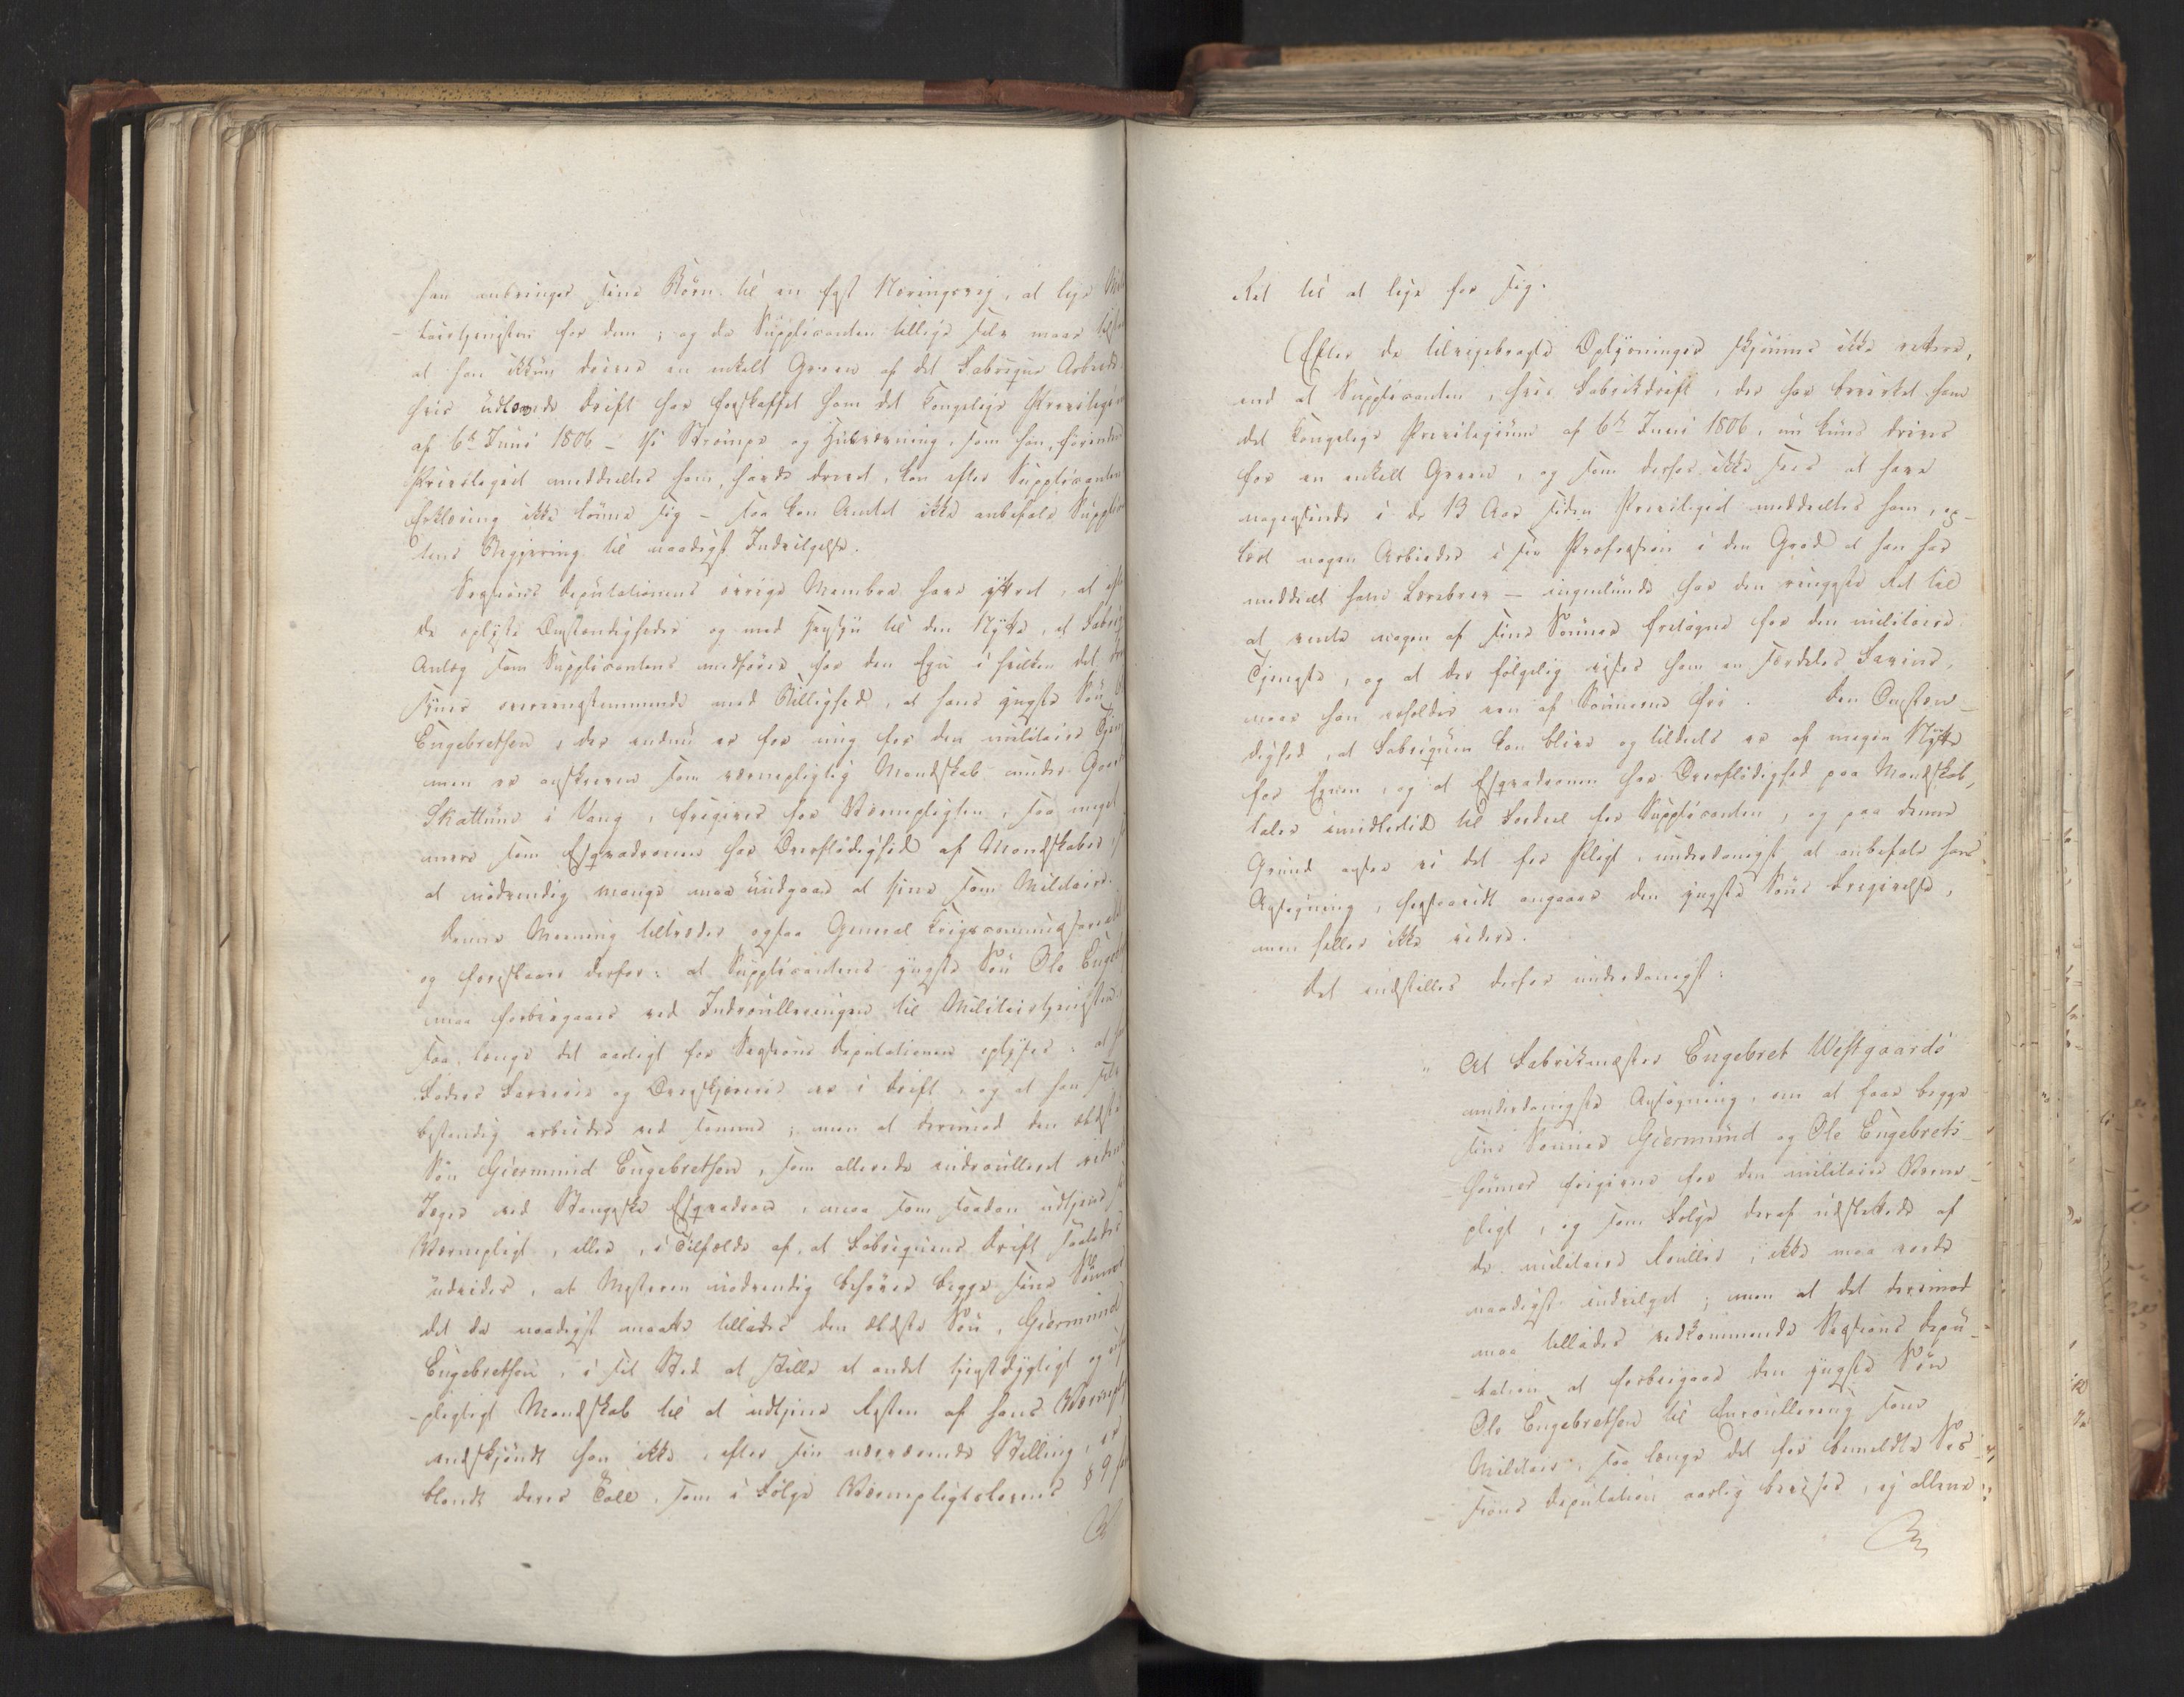 han anbringer sine Børn til en fast Næringsvej, at leje Mili
- tairtjenisten for dem; og da Supplicanten tillige selv maae tilstaae
at han ikkun driver en enkelt Green af det Fabrique Arbeide,
hvis udlovede Drift har forskaffet ham det kongelige Privilegium
af 6te Juni 1806 - thi Strømpe og Huevævning, som han, førinden
Privilegiet meddeeltes ham, havde drevet, kan efter Supplicantens
Erklæring ikke lønne sig - saa kan Amtet ikke anbefale Supplican
tens Begjering til naadigst Indvilgelse.
Sessions Deputationens øvrige Membre have yttret, at efter
de oplyste Omstændigheder og med Hensyn til den Nytte, et Fabrik
Anlæg som Supplicantens medfører for den Egn i hvilken det drives
synes overeenstemmende med Billighed, at hans yngste Søn Ole
Engebretsen, der endnu er for ung for den militaire Tjeneste
men er anskreven som værnepligtig Mandskab under Gaarden
Skattum i Vang, frigives for Værnepligten, saa meget
mere som Esqvadronen har Overflødighed af Mandskaber,
at nødvendig mange maa undgaae at tjene som Militaire.
Denne Mening tiltræder ogsaa General Krigscommissariatet
og foreslaaer derfor: at Supplicantens yngste Søn Ole Engebretsen
maa forbigaaes ved Indroulleringen til Militairtjenesten
saa længe det aarligt for Sessions Deputationen oplyses: at hans
Faders Farverie og Overskjærerie er i Drift, og at han selv
bestandig arbeider ved samme; men at derimod den ældste
Søn Giermund Engebretsen, som allerede indroulleret ridende
Jæger ved Stangeske Esqvadron, maa som saadan udtjene sin
Værnepligt, eller, i Tilfælde af, at Fabriquens Drift saaledes
udvides, at Mesteren nødvendig behøver begge sine Sønner
det da naadigst maatte tillades den ældste Søn, Giermund
Engebretsen, i sit Sted at stille et andet tjenstdygtigt og
- pligtigt Mandskab til at udtjene Resten af hans Værnepligt
endskjøndt han ikke, efter sin nærværende Stilling, er
blandt deres Tall, som i Følge Værnepligtslovens § 9 har
Ret til at leje for sig.
Efter de tilvejebragte Oplysninger skjønnes ikke rettere,
end at Supplicanten, hvis Fabrikdrift, der har bevirket ham
det kongelige Privilegium af 6te Juni 1806, nu kuns drives
for en enkelt Green, og som derfor ikke sees at have
nogensinde i de 13 Aar siden Privilegiet meddeeltes ham, op-
lært nogen Arbeider i sin Profession i den Grad at han har
meddeelt ham Lærebrev - ingenlunde har den ringeste Ret til
at vente nogen af sine Sønner fritagne for den militaire
Tjeneste, og at der følgelig vises ham en særdeles Favør,
naar han erholder een af Sønnerne fri. Den Omstæn-
dighed, at Fabriquen kan blive og tildeels er af megen Nytte
for Egnen, og at Esqvadronen har Overflødighed paa Mandskab,
taler imidlertid til Fordeel for Supplicanten, og paa denne
Grund agter vi det for Pligt, underdanigst at anbefale hans
Ansøgning, forsaavidt angaaer den yngste Søns Frigivelse,
men heller ikke videre.
Det indstilles derfor underdanigst:
" At Fabrikmester Engebret Westgaards
underdanigste Ansøgning, om at faae begge
sine Sønner Giermund og Ole Engebrets
- sønner frigivne for den militaire Værne-
pligt, og som Følge deraf udslettede af
de militaire Rouller, ikke maa vorde
naadigst indvilget; men at det derimod
maa tillades vedkommende Sessions Depu-
- tation at forbigaae den yngste Søn
Ole Engebretsen til Enroullering som
Militair, saa længe det for bemeldte Ses-
- sions Deputation aarlig bevises, ej allene